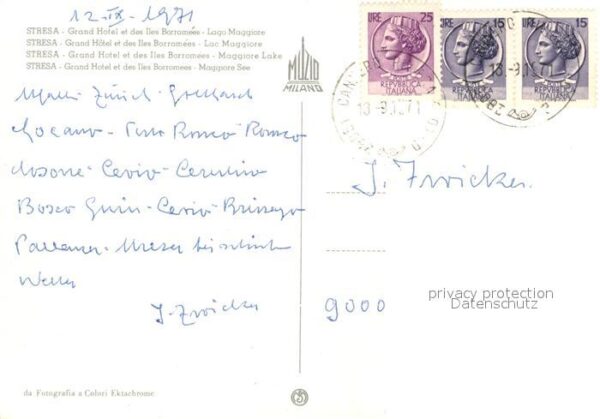 12-IX-1971
STRESA - Grand Hotel et des Iles Borromées - Lago Maggiore
STRESA - Grand Hôtel et des Iles Borromées - Lac Maggiore
STRESA - Grand Hotel et des Iles Borromées - Maggiore Lake
STRESA - Grand Hotel et des Iles Borromées - Maggiore See
MUZIO
MILANO
LIRE 25
REPVBBLICA
ITALIANA
LIRE 15
REPVBBLICA
ITALIANA
15
REPVBBLICA
ITALIANA
13-9.1971
13-9.19
Zürich - Gotthard
Locarno - Ronco
- Cevio - Cerentino
Bosco Gurin - Cevio - Brissago
Pallanza -
Wetter
J. Zwicker
J. Zwicker.
9000
privacy protection
Datenschutz
da Fotografia a Colori Ektachrome